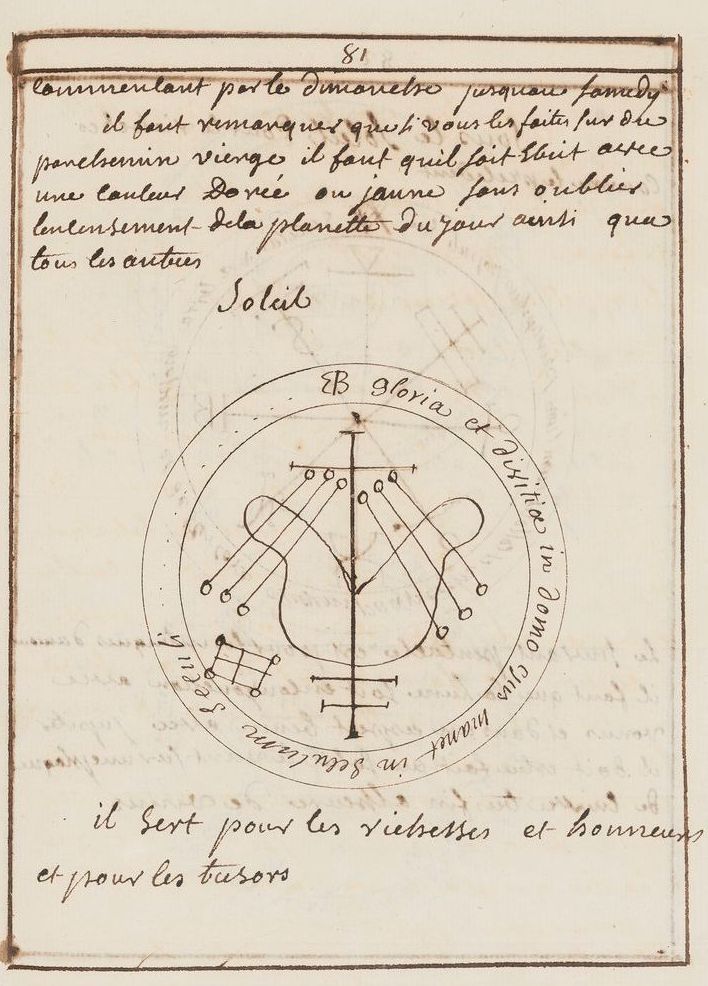 81
commencant par le dimanche jusquau samedy
il faut remarquer que si vous les faites sur du
parchemin vierge il faut quil soit Ecrit avec
une couleur Dorée ou jaune sans oublier
lencensement dela planette du jour ainsi qua
tous les autres
Soleil
gloria et divitiæ in domo ejus manet in seculum seculi
il sert pour les richesses et honneurs
et pour les tresors